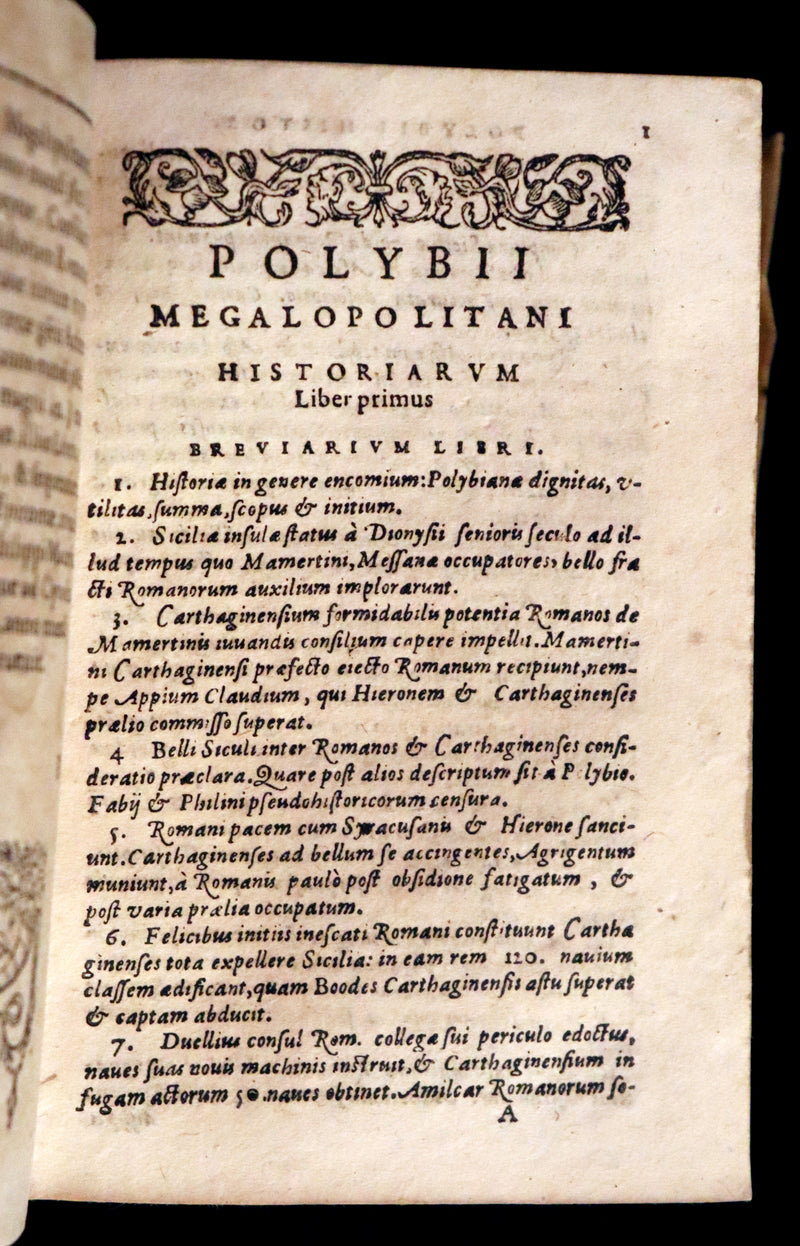 1
POLYBII
MEGALOPOLITANI
HISTORIARVM
Liber primus
BREVIARIVM LIBRI.
1. Hiſtoriæ in genere encomium: Polybianæ dignitas, v-
tilitas, ſumma, ſcopus & initium.
2. Siciliæ inſulæ ſtatus à Dionyſii ſenioris ſeculo ad il-
lud tempus quo Mamertini, Meſſanæ occupatores, bello fra
cti Romanorum auxilium implorarunt.
3. Carthaginenſium formidabilis potentia Romanos de
Mamertinis iuuandis conſilium capere impellit. Mamerti-
ni Carthaginenſi præfecto eiecto Romanum recipiunt, nem-
pe Appium Claudium, qui Hieronem & Carthaginenſes
prælio commiſſo ſuperat.
4 Belli Siculi inter Romanos & Carthaginenſes conſi-
deratio præclara. Quare poſt alios deſcriptum ſit à P lybio.
Fabij & Philini pſeudohiſtoricorum cenſura.
5. Romani pacem cum Syracuſanis & Hierone ſanci-
unt. Carthaginenſes ad bellum ſe accingentes, Agrigentum
muniunt, à Romanis paulò poſt obſidione fatigatum, &
poſt varia prælia occupatum.
6. Felicibus initiis ineſcati Romani conſtituunt Cartha
ginenſes tota expellere Sicilia: in eam rem 120. nauium
claſſem ædificant, quam Boodes Carthaginenſis aſtu ſuperat
& captam abducit.
7. Duellius conſul Rom. collegæ ſui periculo edoctus,
naues ſuas nouis machinis inſtruit, & Carthaginenſium in
fugam actorum 50. naues obtinet. Amilcar Romanorum ſo-
A